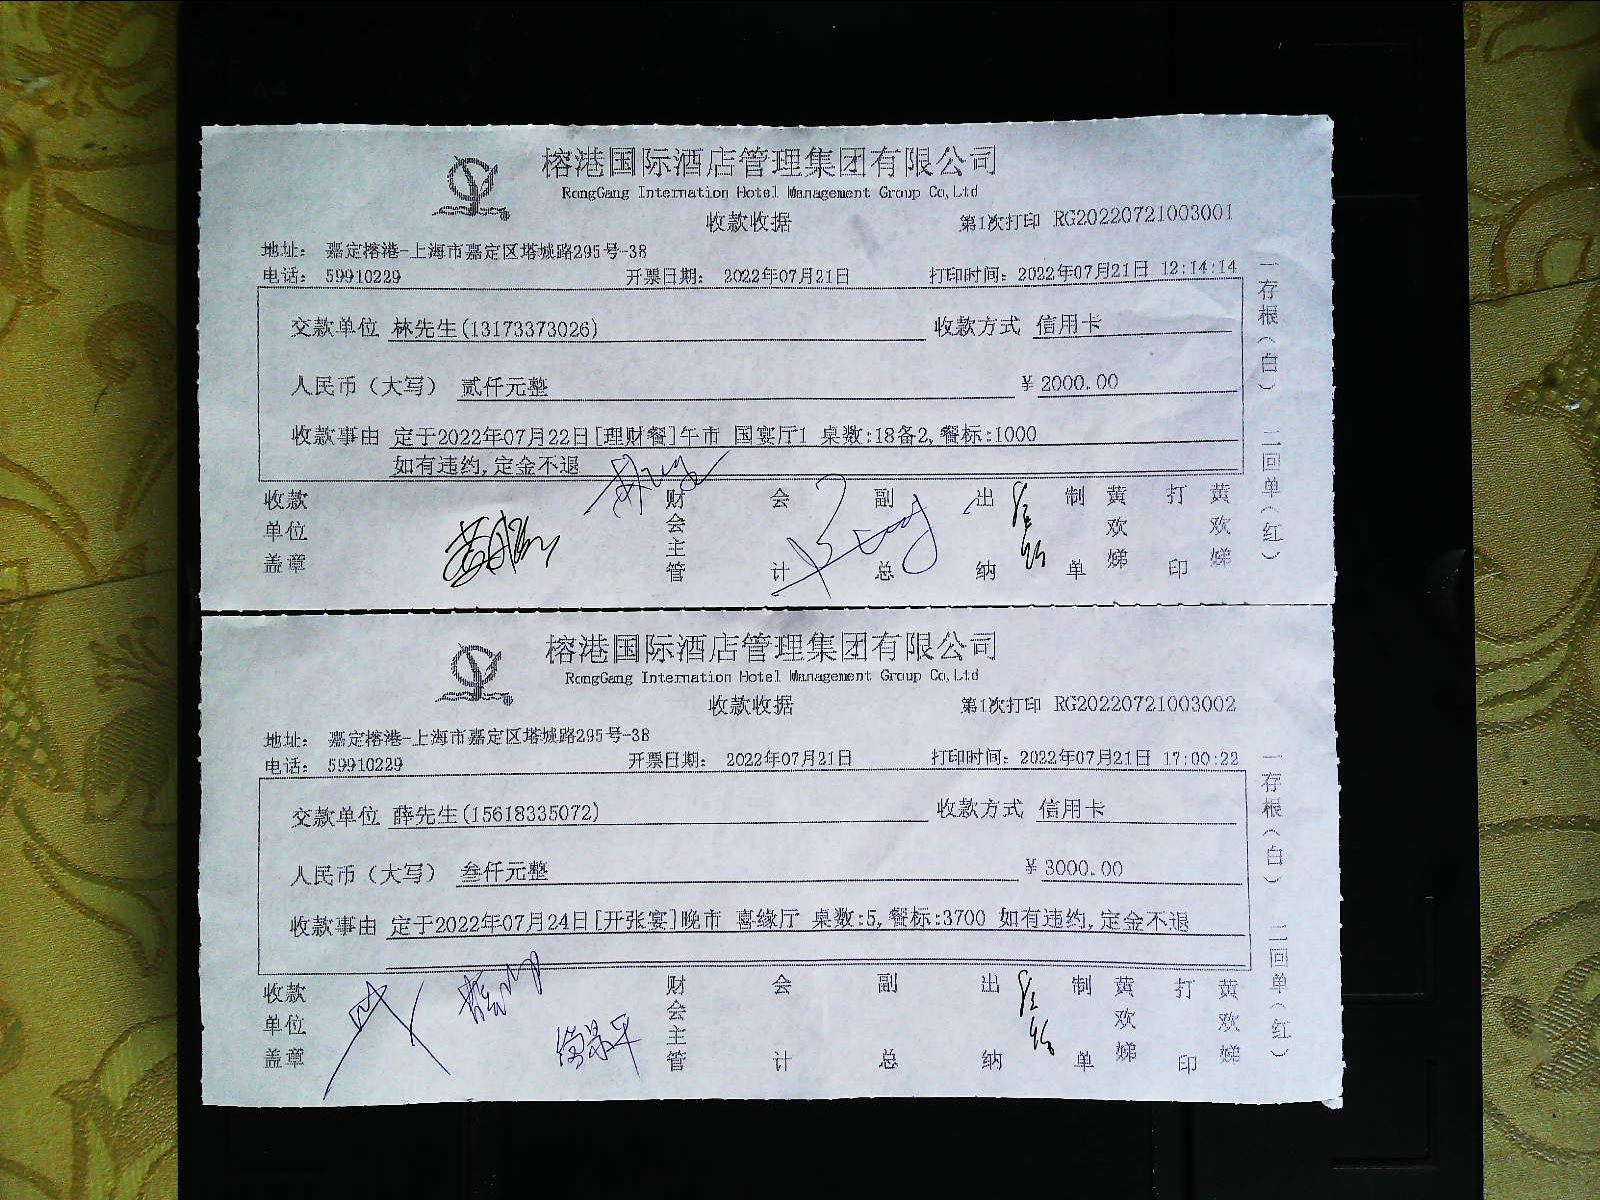 榕港国际酒店管理集团有限公司
RongGang Internation Hotel Management Group Co,Ltd
收款收据 第1次打印 RG20220721003001
地址: 嘉定榕港-上海市嘉定区塔城路295号-38
电话: 59910229 开票日期: 2022年07月21日 打印时间: 2022年07月21日 12:14:14
交款单位 林先生(13173373026) 收款方式 信用卡
人民币(大写) 贰仟元整 ¥ 2000.00
收款事由 定于2022年07月22日[理财餐]午市 国宴厅1 桌数:18备2,餐标:1000
如有违约,定金不退
收款单位盖章 财会主管 会计 副总 出纳 制单 黄欢娣 打印 黄欢娣
一存根(白) 二回单(红)
榕港国际酒店管理集团有限公司
RongGang Internation Hotel Management Group Co,Ltd
收款收据 第1次打印 RG20220721003002
地址: 嘉定榕港-上海市嘉定区塔城路295号-38
电话: 59910229 开票日期: 2022年07月21日 打印时间: 2022年07月21日 17:00:22
交款单位 薛先生(15618335072) 收款方式 信用卡
人民币(大写) 叁仟元整 ¥ 3000.00
收款事由 定于2022年07月24日[开张宴]晚市 喜缘厅 桌数:5,餐标:3700 如有违约,定金不退
收款单位盖章 财会主管 会计 副总 出纳 制单 黄欢娣 打印 黄欢娣
一存根(白) 二回单(红)